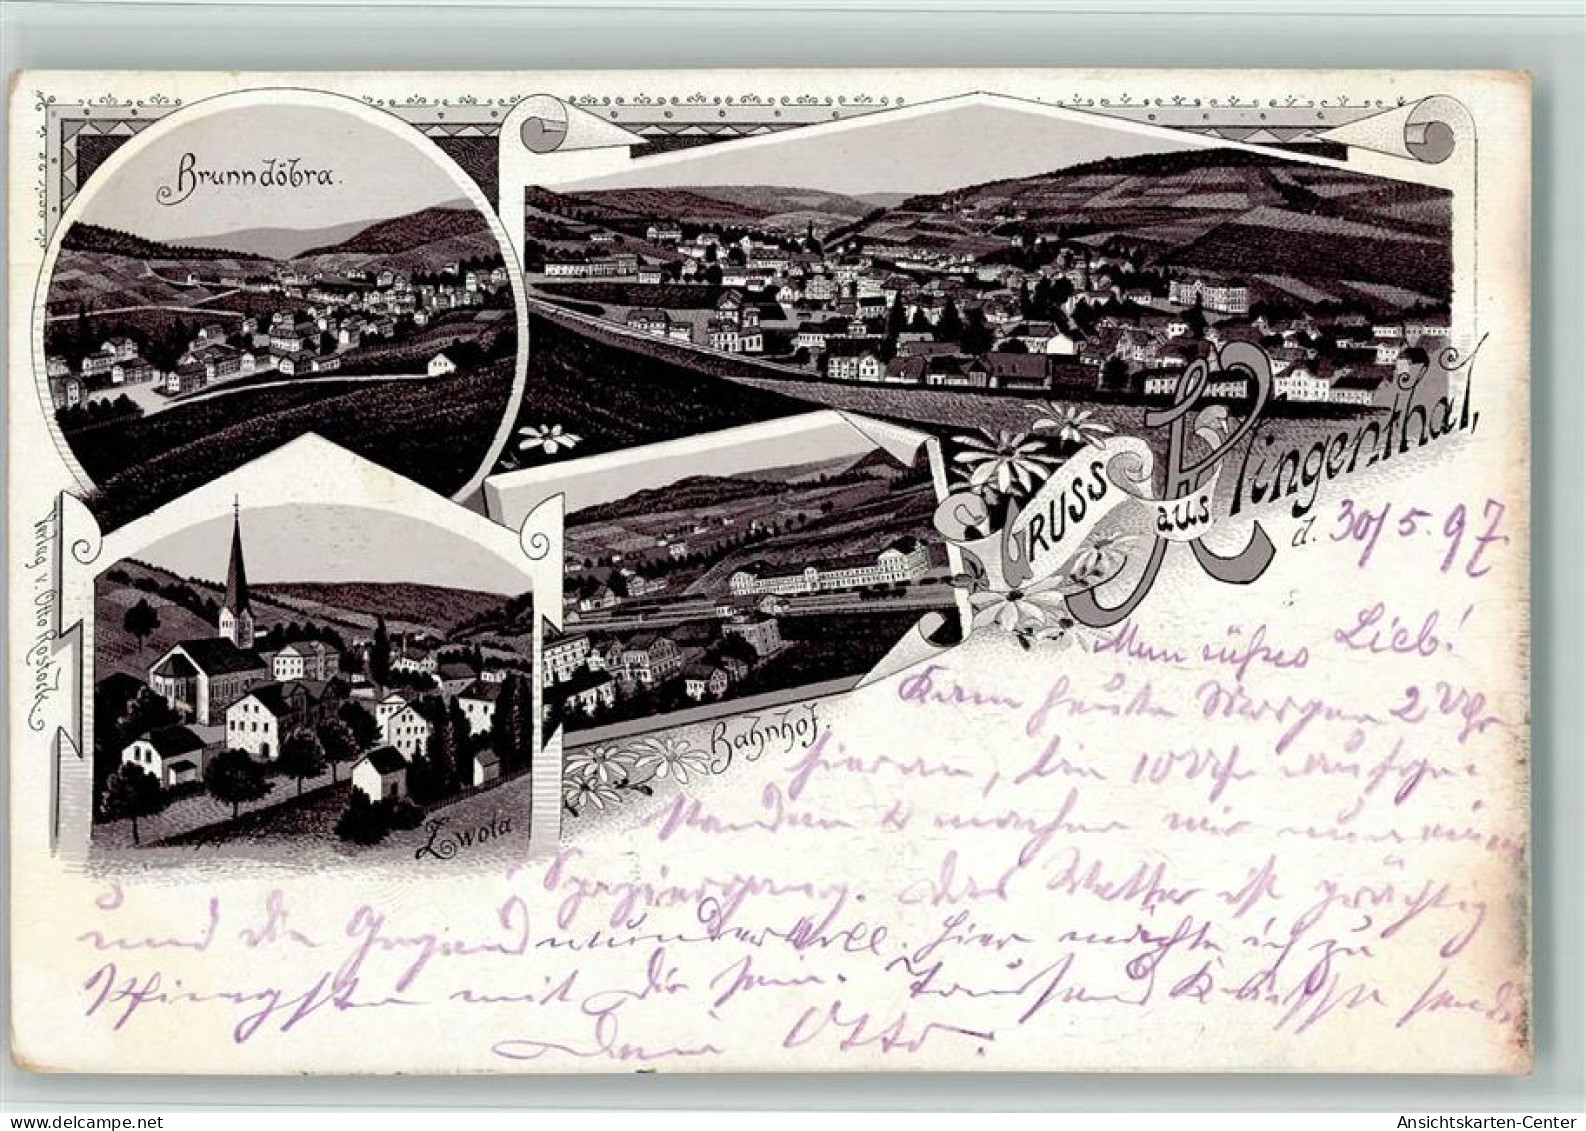 Brunndöbra.
Gruss aus Klingenthal,
d. 30/5. 97.
Mein süßes Lieb!
Kam heute Morgen 2 Uhr
hier an, bin 10 Uhr aufge-
standen & machen wir nun einen
Spaziergang. Das Wetter ist prächtig
und die Gegend wundervoll. Hier möchte ich zu
Pfingsten mit Dir sein. Tausend Küsse sendet
Dein Otto.
Bahnhof.
Zwota
Verlag v.
Ansichtskarten-Center
https://www.delcampe.net